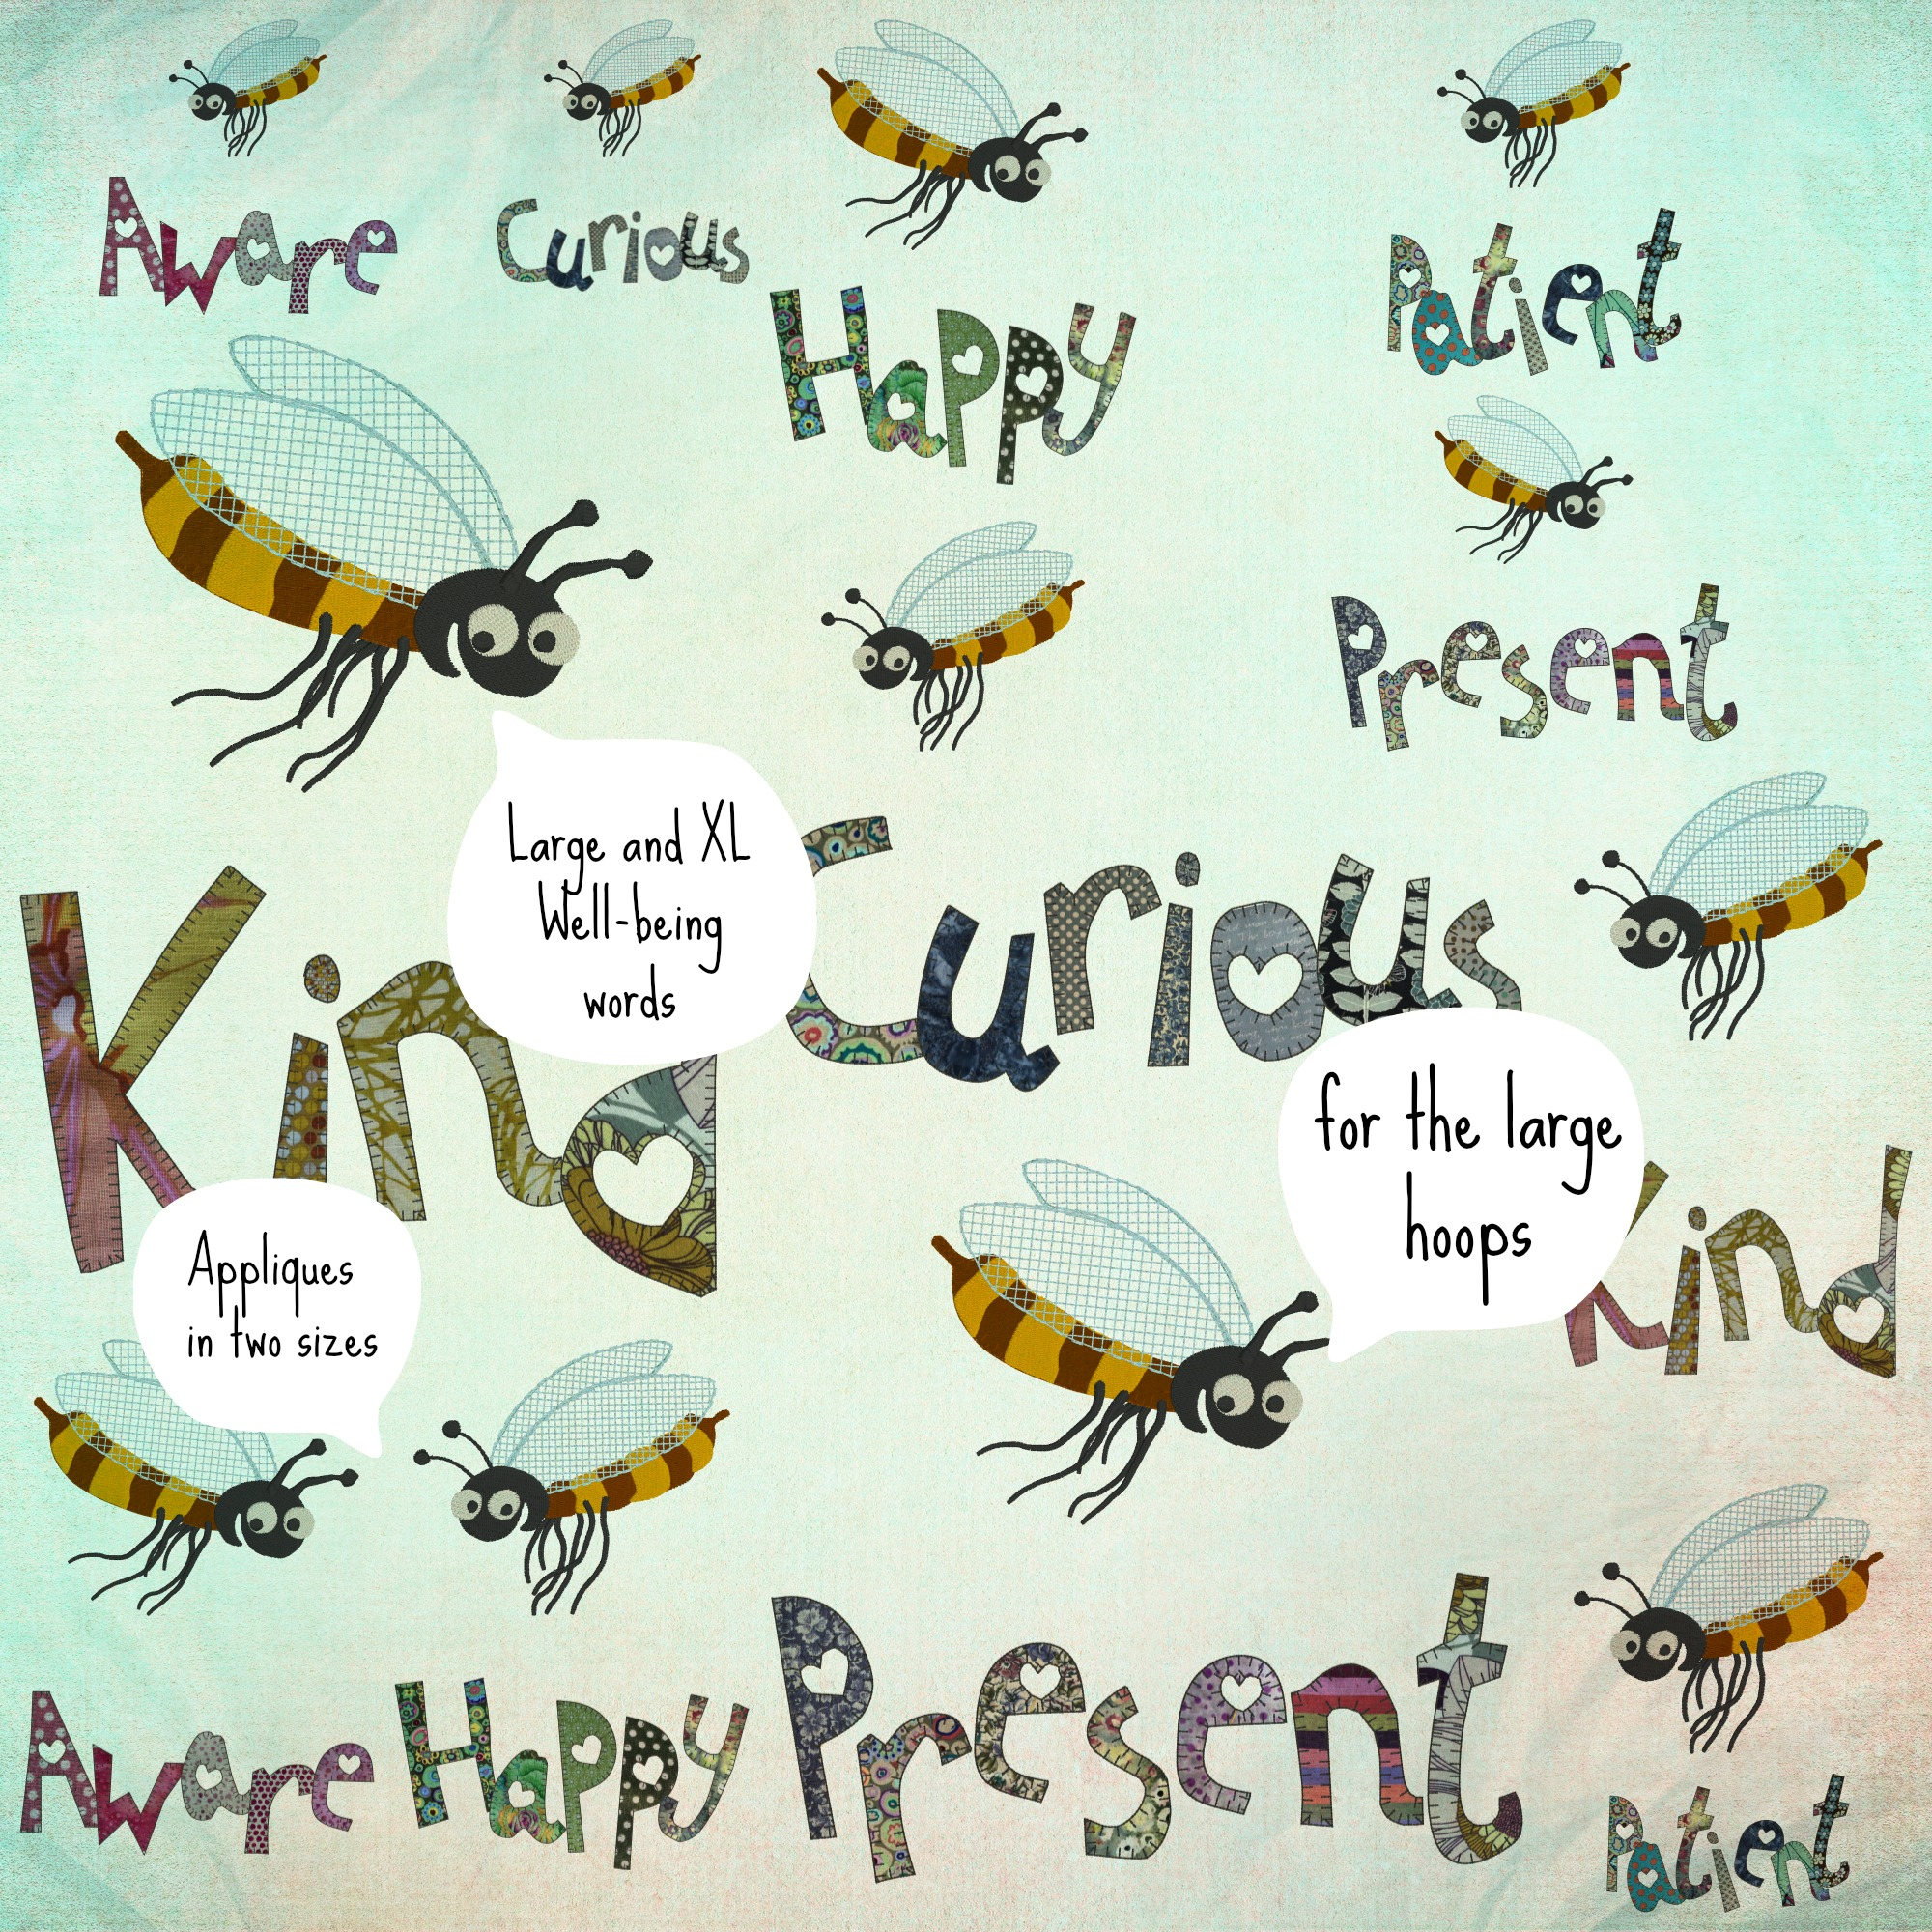 Aware
Curious
Happy
Patient
Present
Large and XL
Well-being
words
Kind
Curious
for the large
hoops
Kind
Appliques
in two sizes
Aware
Happy
Present
Patient